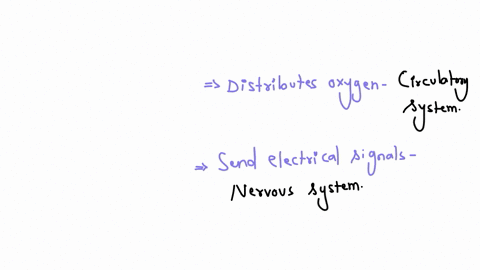 ⇒ Distributes oxygen- Circulatory
system.
⇒ Send electrical signals-
Nervous system.